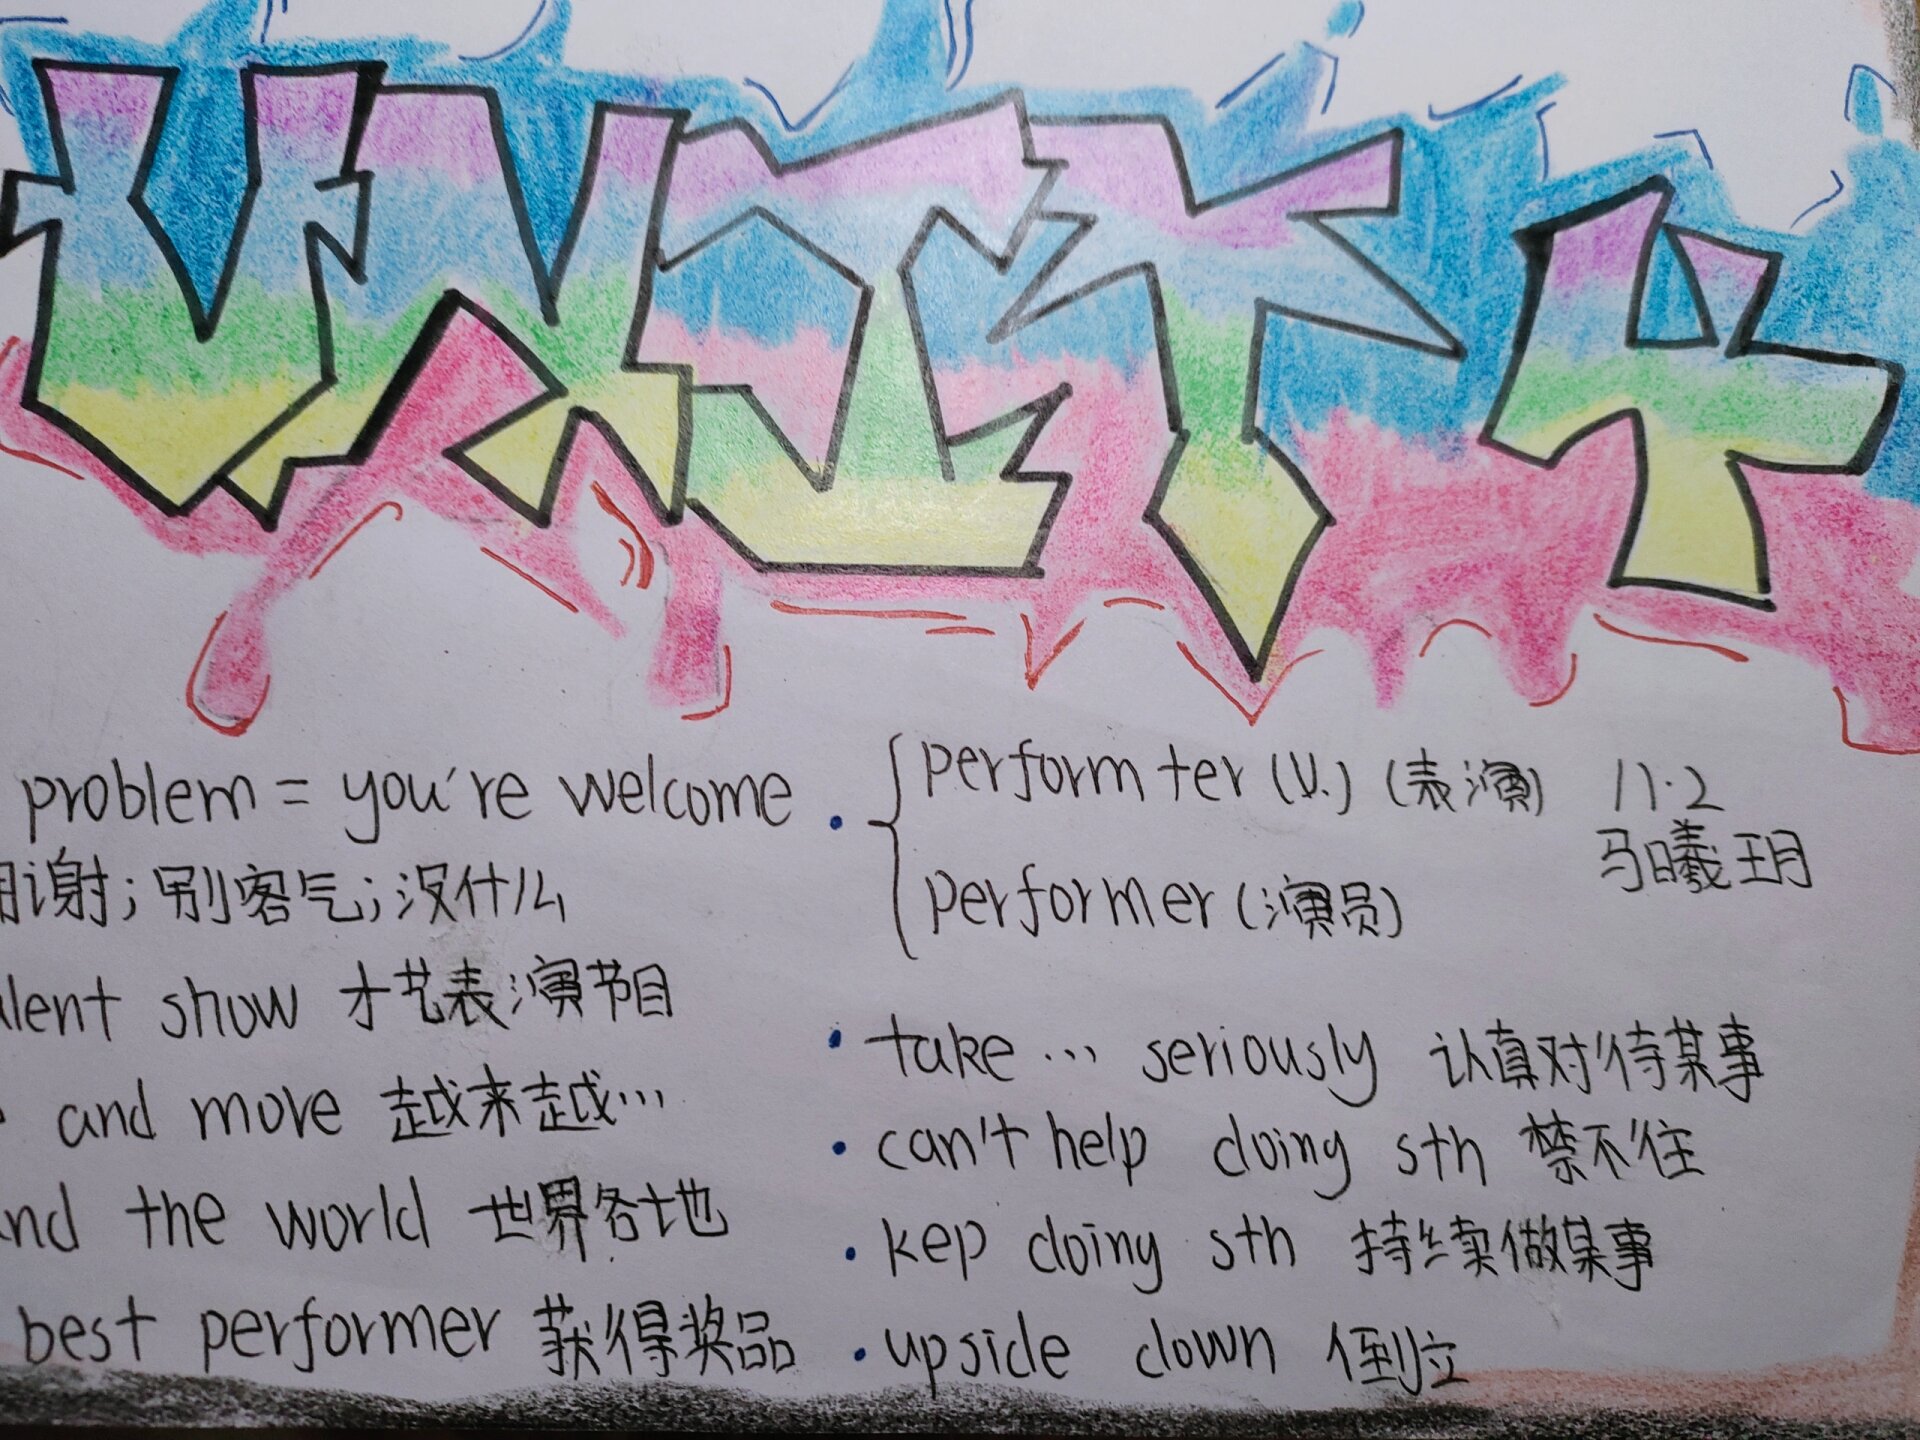 UNIT 4
problem = you're welcome
谢; 别客气; 没什么
lent show 才艺表演节目
and more 越来越…
nd the world 世界各地
best performer 获得奖品
perform ter (v.) (表演)
performer (演员)
11.2
马曦玥
take … seriously 认真对待某事
can't help doing sth 禁不住
kep doing sth 持续做某事
upside down 倒立